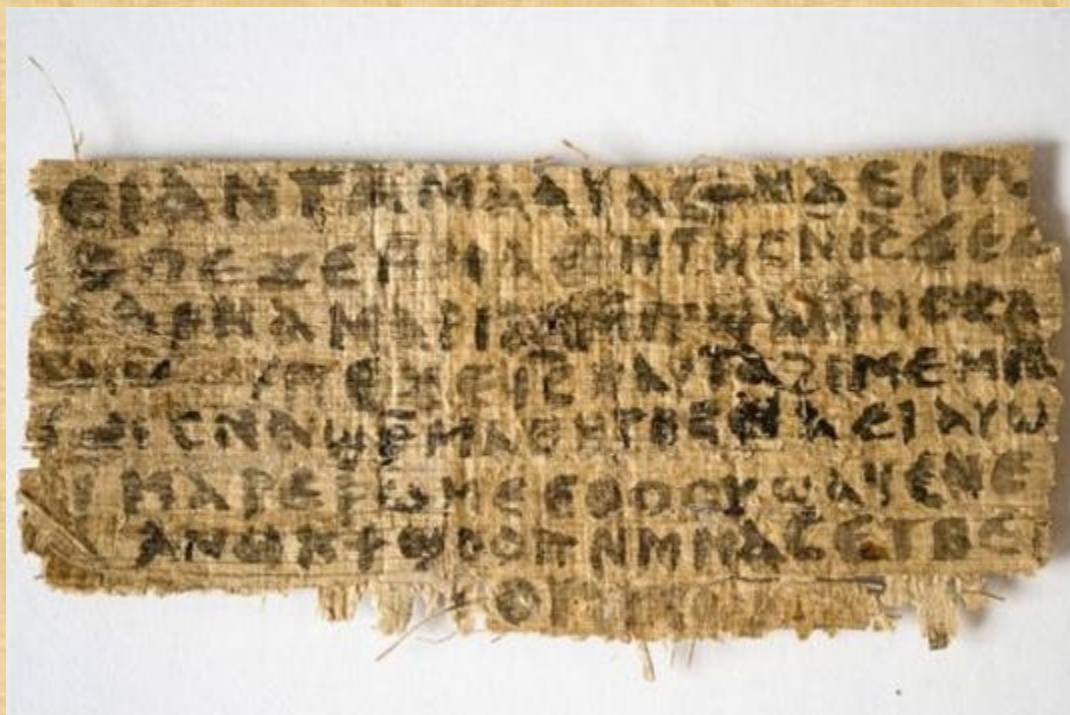 ⲉⲓ ⲁⲛ ⲧⲁⲙⲁⲁⲩ ⲁⲥϯ ⲛⲁⲉⲓ
ⲡⲉϫⲉ ⲙⲙⲁⲑⲏⲧⲏⲥ ⲛⲓⲥ̅ ϫⲉ
ⲁⲣⲛⲁ ⲙⲁⲣⲓⲁⲙ ⲙⲡϣⲁ ⲙⲙⲟⲥ ⲁ
ⲡⲉϫⲉ ⲓⲥ̅ ⲛⲁⲩ ⲧⲁϩⲓⲙⲉ ⲙⲛ
ⲥⲛⲁϣⲣ ⲙⲁⲑⲏⲧⲏⲥ ⲛⲁⲉⲓ ⲁⲩⲱ
ⲓ ⲙⲁⲣⲉ ⲣⲱⲙⲉ ⲉⲑⲟⲟⲩ ϣⲁϥⲉ ⲛⲉ
ⲁⲛⲟⲕ ϯϣⲟⲟⲡ ⲛⲙⲙⲁⲥ ⲉⲧⲃⲉ